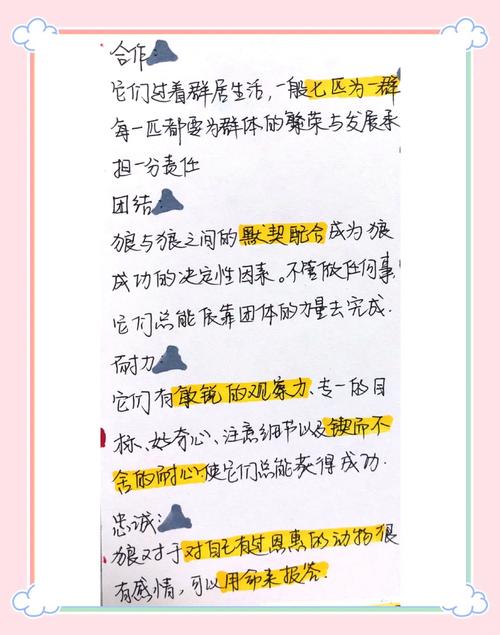 合作:
它们过着群居生活,一般七匹为一群
每一匹都要为群体的繁荣与发展承
担一分责任
团结:
狼与狼之间的默契配合成为狼
成功的决定性因素。不管做任何事,
它们总能依靠团体的力量去完成.
耐力:
它们有敏锐的观察力、专一的目
标、好奇心、注意细节以及锲而不
舍的耐心使它们总能获得成功.
忠诚:
狼对于对自己有过恩惠的动物狼
有感情,可以用命来报答.